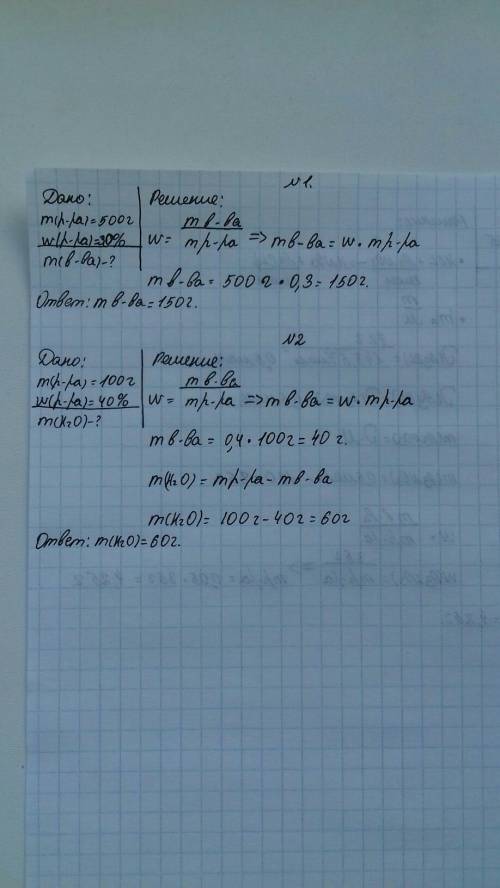 №1.
Дано:
m(р-ра)=500г
w(р-ра)=30%
m(в-ва)-?
Решение:
w= m в-ва / m р-ра => m в-ва = w · m р-ра
m в-ва = 500 г · 0,3 = 150г.
Ответ: m в-ва = 150г.
№2
Дано:
m(р-ра)=100г
w(р-ра)=40%
m(H2O)-?
Решение:
w= m в-ва / m р-ра => m в-ва = w · m р-ра
m в-ва = 0,4 · 100г = 40 г.
m(H2O) = m р-ра - m в-ва
m(H2O) = 100г - 40г = 60г
Ответ: m(H2O) = 60г.